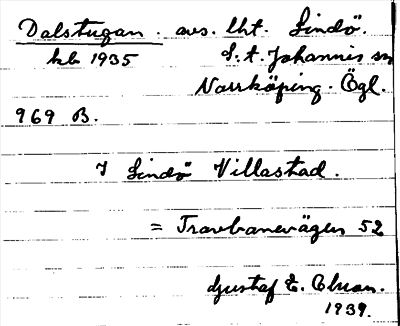 Dalstugan. avs. lht. Lindö.
kb 1935 S:t. Johannis sn
Norrköping. Ögl.
969 B.
I Lindö Villastad.
= Travbanevägen 52
Gustaf E. Olson.
1939.